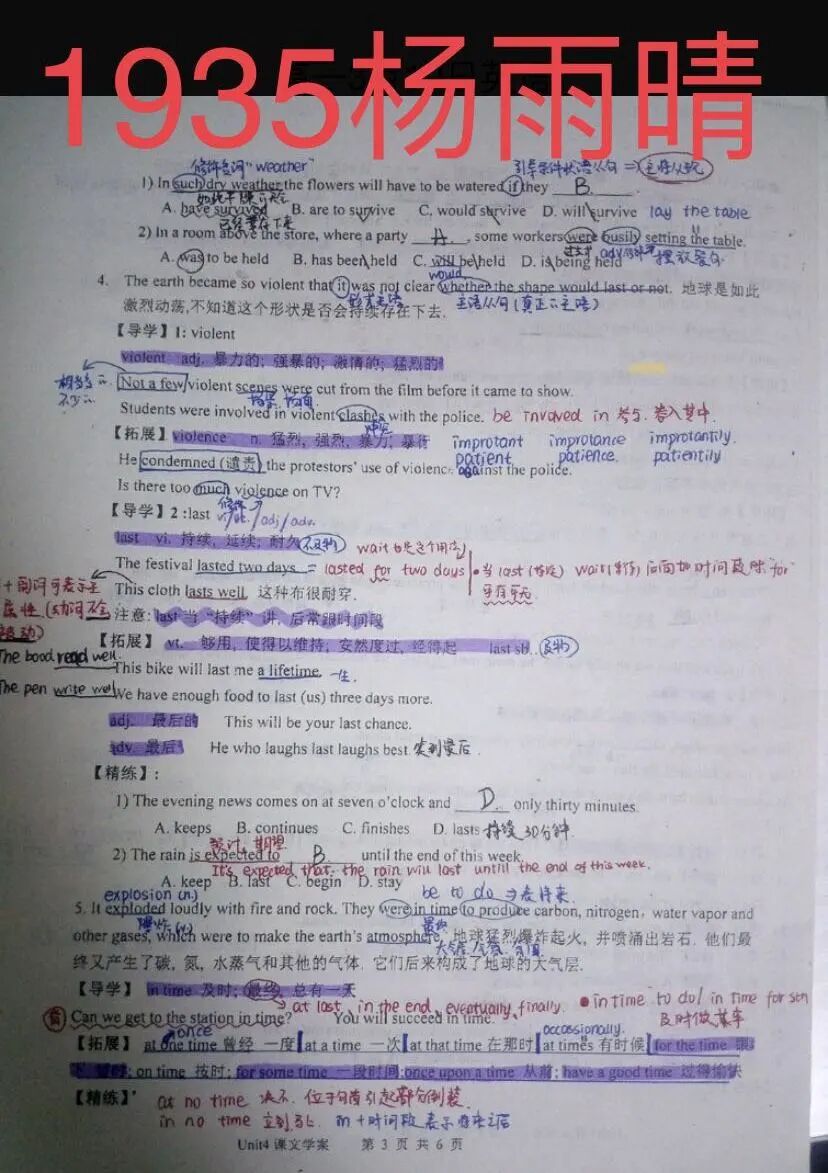 1935杨雨晴
修饰名词"weather"
引导条件状语从句 ⇒ 主将从现
1) In such dry weather the flowers will have to be watered if they B.
A. have survived B. are to survive C. would survive D. will survive lay the table
2) In a room above the store, where a party A. , some workers were busily setting the table.
A. was to be held B. has been held C. will be held D. is being held
would
4. The earth became so violent that it was not clear whether the shape would last or not. 地球是如此
激烈动荡,不知道这个形状是否会持续存在下去. 形式主语 主语从句(真正的主语)
【导学】1: violent
violent adj. 暴力的; 强暴的; 激情的; 猛烈的
Not a few violent scenes were cut from the film before it came to show.
Students were involved in violent clashes with the police. be involved in 参与. 卷入其中.
冲突
【拓展】violence n. 猛烈, 强烈, 暴力, 暴行 improtant improtance improtantily.
patient patience. patientily
He condemned (遣责) the protestors' use of violence against the police.
Is there too much violence on TV?
修饰
【导学】2 :last vi./vt./adj/adv.
last vi. 持续, 延续; 耐久 不及物 wait也是这个用法
The festival lasted two days = lasted for two days
当last(持续) wait(等待)后面加时间段时"for"
可有可无
This cloth lasts well. 这种布很耐穿.
注意: last 当"持续"讲, 后常跟时间段
【拓展】 vt. 够用, 使得以维持; 安然度过, 经得起 last sb. 及物
The bood read well.
This bike will last me a lifetime. 一生.
The pen write well
We have enough food to last (us) three days more.
adj. 最后的 This will be your last chance.
adv. 最后 He who laughs last laughs best. 笑到最后.
【精练】:
1) The evening news comes on at seven o'clock and D. only thirty minutes.
A. keeps B. continues C. finishes D. lasts 持续30分钟.
预计, 期望
2) The rain is expected to B. until the end of this week.
It's expected that the rain will last untill the end of this week.
A. keep B. last C. begin D. stay
explosion (n.) be to do → 表将来.
5. It exploded loudly with fire and rock. They were in time to produce carbon, nitrogen, water vapor and
爆炸(v.) 最终
other gases, which were to make the earth's atmosphere. 地球猛烈爆炸起火, 并喷涌出岩石. 他们最
终又产生了碳, 氮, 水蒸气和其他的气体. 它们后来构成了地球的大气层.
【导学】 in time 及时; 最终, 总有一天
at last, in the end, eventually, finally. in time to do/ in time for sth
及时做某事
Can we get to the station in time? You will succeed in time.
once occassionally.
【拓展】 at one time 曾经 一度 at a time 一次 at that time 在那时 at times 有时候 for the time 眼
下 暂时; on time 按时; for some time 一段时间 once upon a time 从前; have a good time 过得愉快
【精练】 at no time 决不. 位于句首引起部分倒装.
in no time 立刻马上 in+时间段表示将来之后
Unit4 课文学案 第 3 页 共 6 页